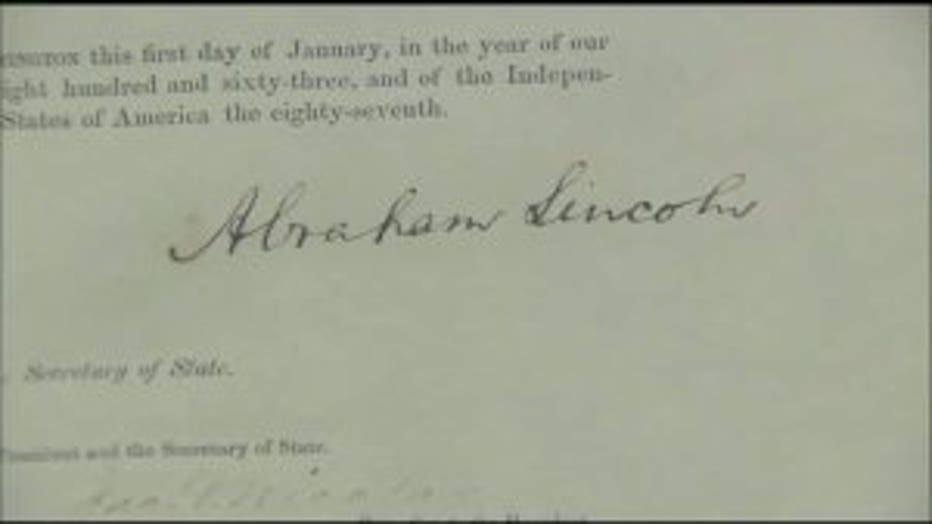 this first day of January, in the year of our
ight hundred and sixty-three, and of the Indepen-
States of America the eighty-seventh.
Abraham Lincoln
Secretary of State.
and the Secretary of State.